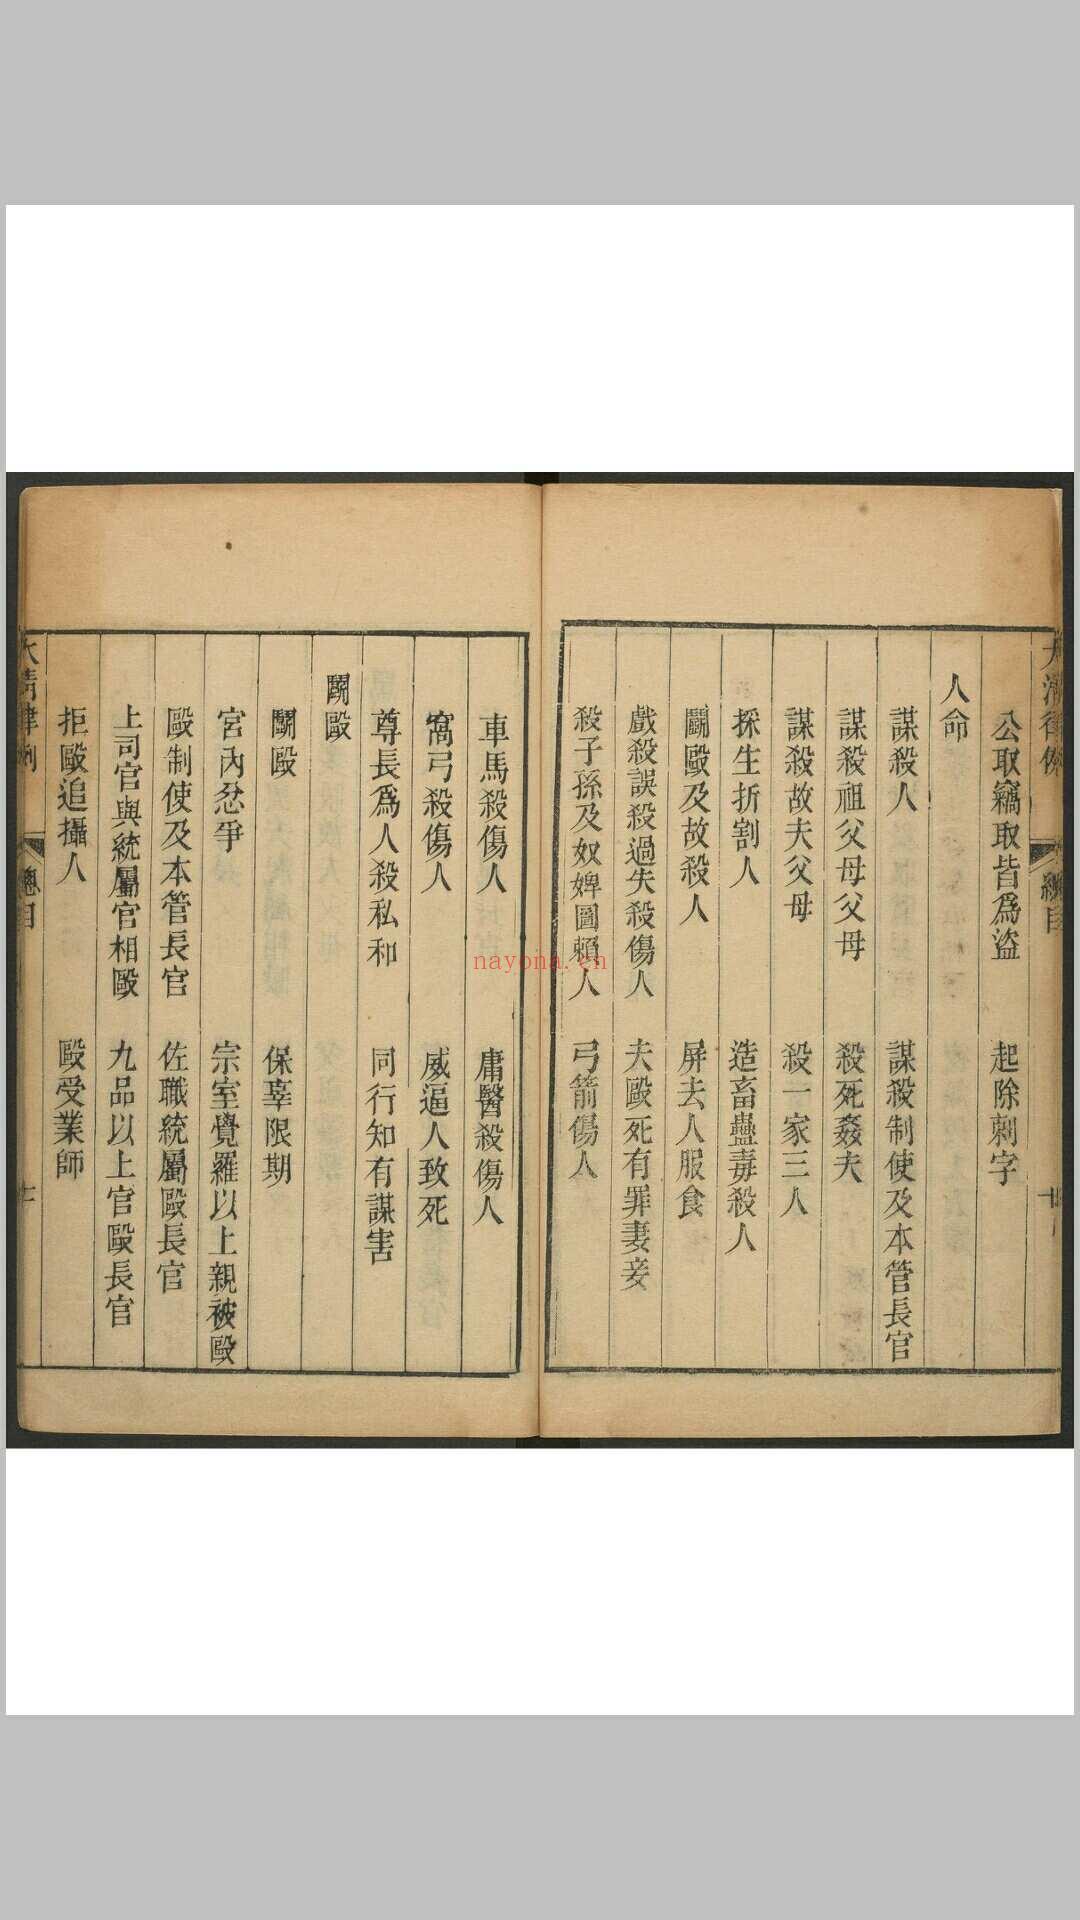 大清律例 總目
公取竊取皆爲盜 起除刺字
人命
謀殺人 謀殺制使及本管長官
謀殺祖父母父母 殺死姦夫
謀殺故夫父母 殺一家三人
採生折割人 造畜蠱毒殺人
鬬毆及故殺人 屏去人服食
戲殺誤殺過失殺傷人 夫毆死有罪妻妾
殺子孫及奴婢圖賴人 弓箭傷人
車馬殺傷人 庸醫殺傷人
窩弓殺傷人 威逼人致死
尊長爲人殺私和 同行知有謀害
鬬毆
鬬毆 保辜限期
宮內忿爭 宗室覺羅以上親被毆
毆制使及本管長官 佐職統屬毆長官
上司官與統屬官相毆 九品以上官毆長官
拒毆追攝人 毆受業師
大清律例 總目
nayona.cn